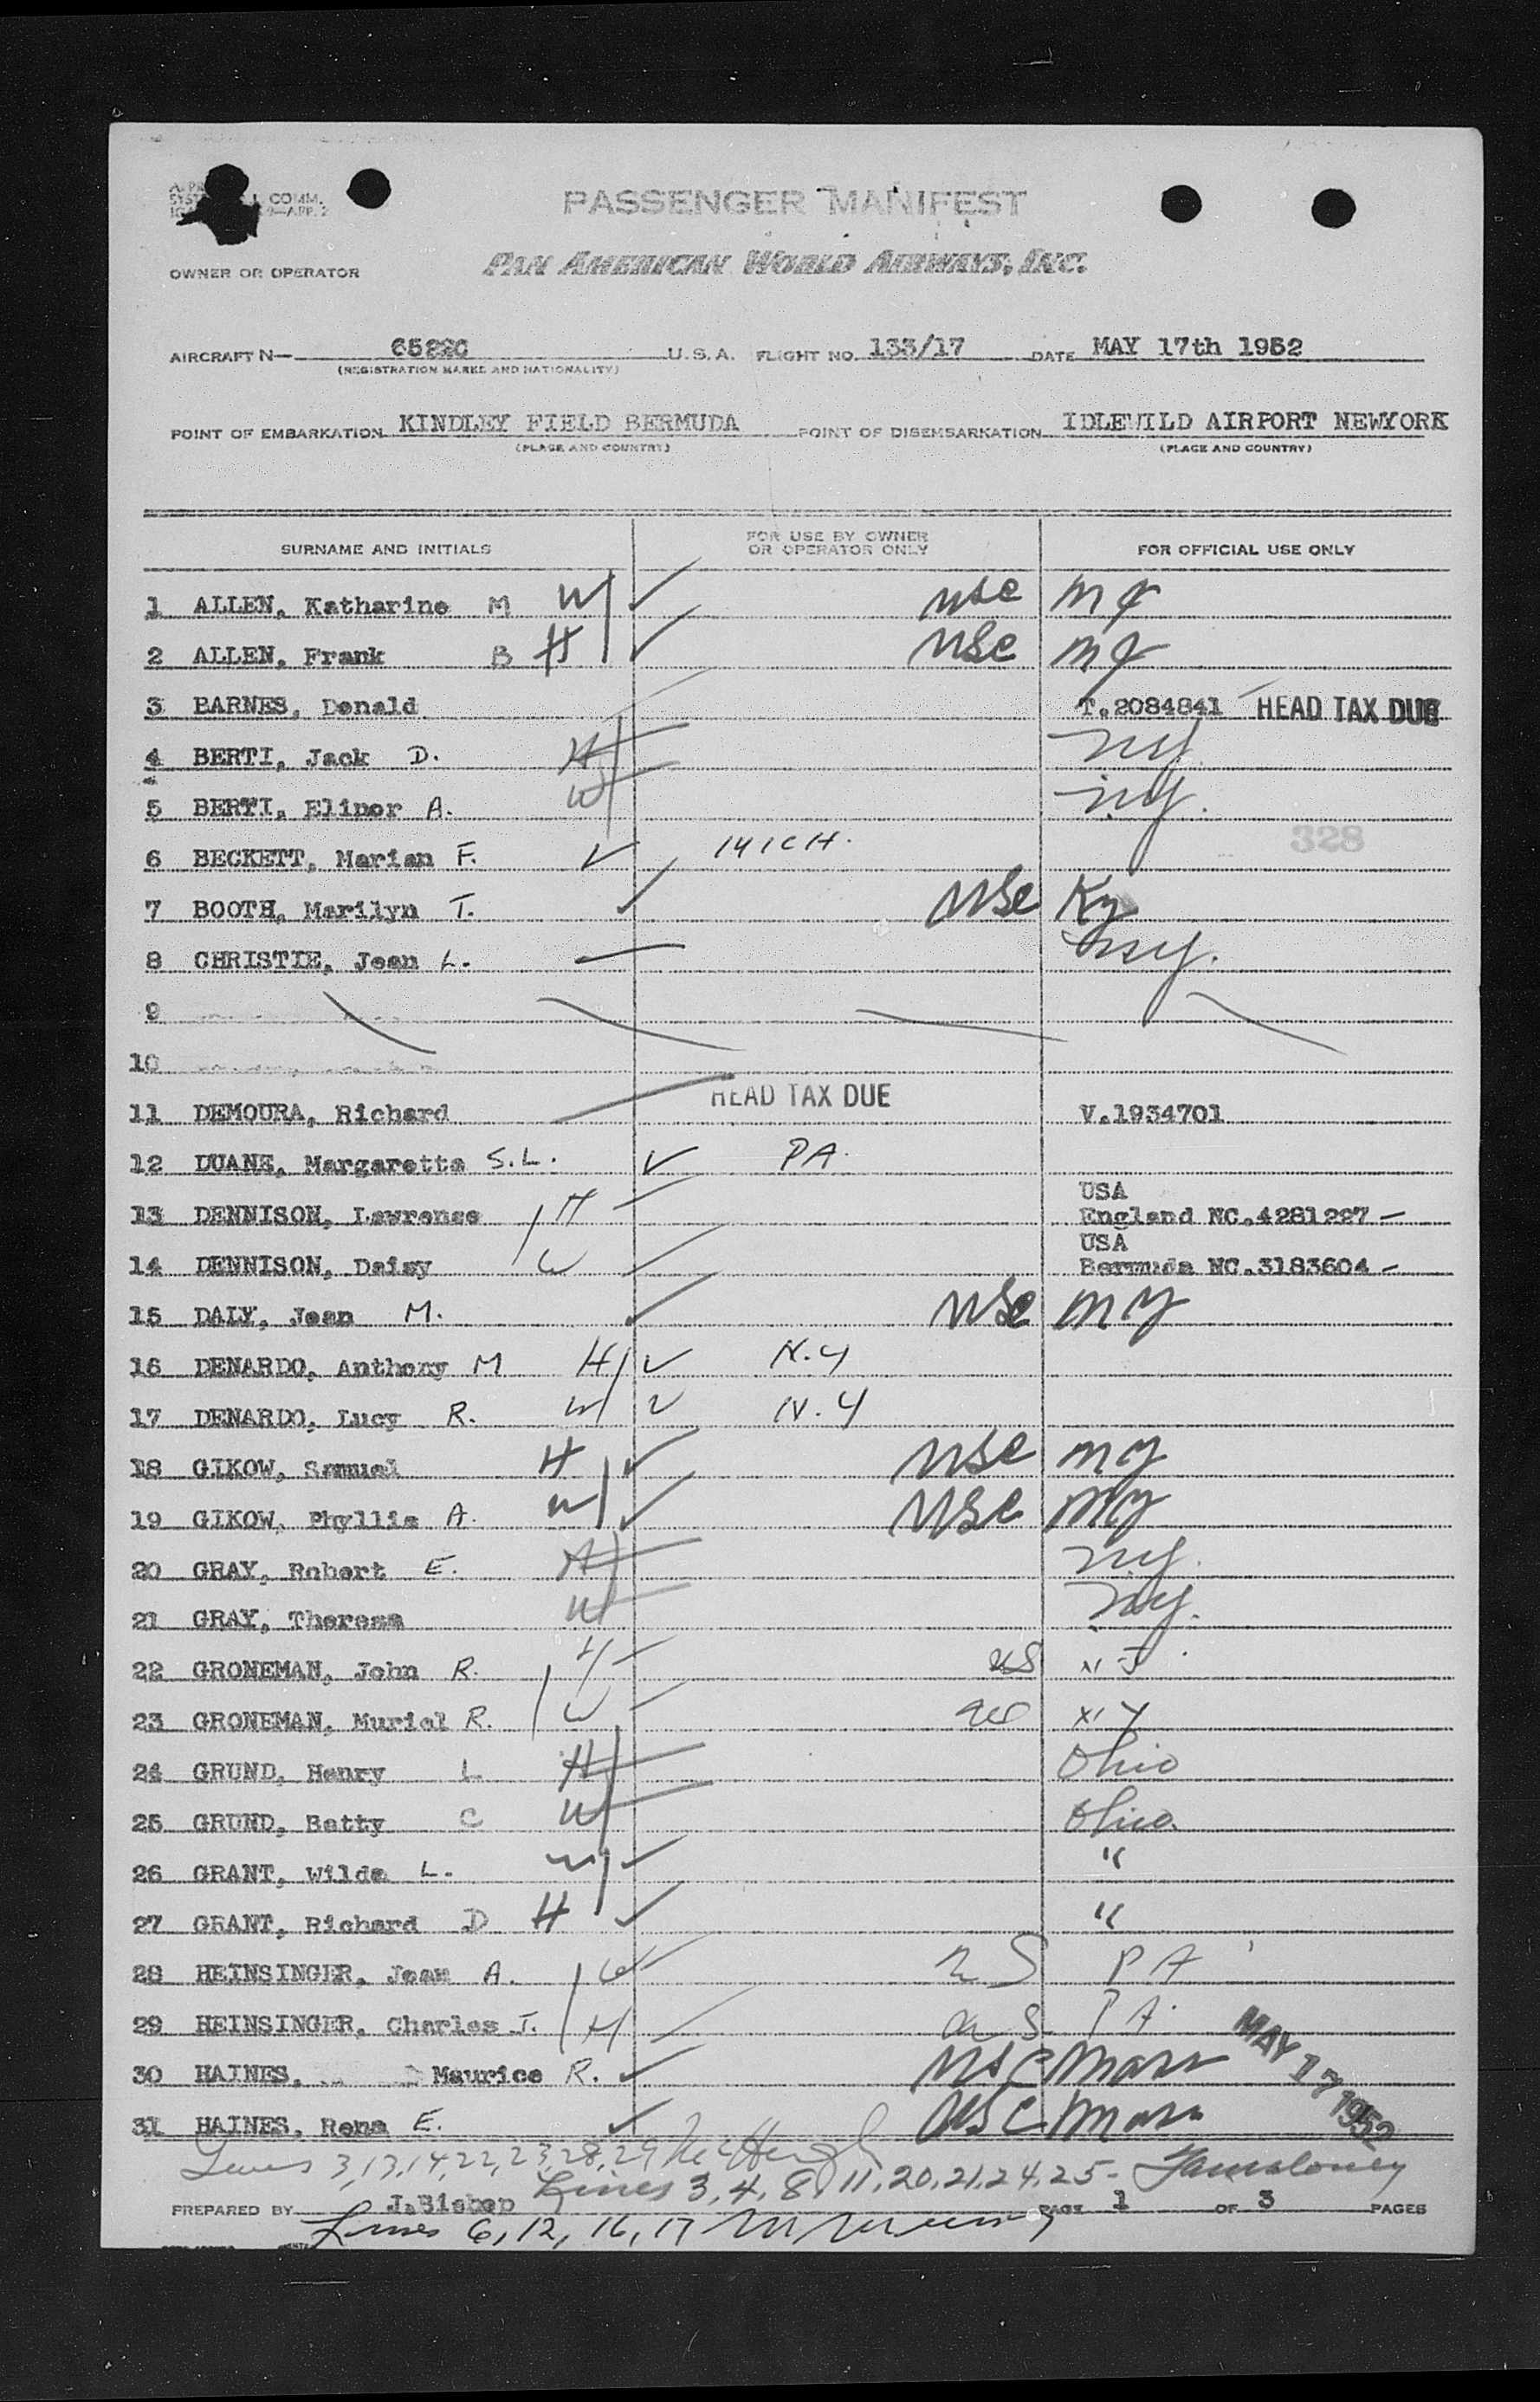 COMM.
9—APP. 2
PASSENGER MANIFEST
PAN AMERICAN WORLD AIRWAYS, INC.
OWNER OR OPERATOR
AIRCRAFT N— 6522C U.S.A. FLIGHT NO. 133/17 DATE MAY 17th 1952
(REGISTRATION MARKS AND NATIONALITY)
POINT OF EMBARKATION KINDLEY FIELD BERMUDA POINT OF DISEMBARKATION IDLEWILD AIRPORT NEWYORK
(PLACE AND COUNTRY) (PLACE AND COUNTRY)
SURNAME AND INITIALS FOR USE BY OWNER OR OPERATOR ONLY FOR OFFICIAL USE ONLY
1 ALLEN, Katharine M W USC
2 ALLEN, Frank B H USC
3 BARNES, Donald T.2084841 HEAD TAX DUE
4 BERTI, Jack D. H NY
5 BERTI, Elinor A. W NY.
328
6 BECKETT, Marian F. MICH.
7 BOOTH, Marilyn T. USC Ky
8 CHRISTIE, Jean L. NY.
9
10
11 DEMOURA, Richard HEAD TAX DUE V.1934701
12 DUANE, Margaretta S.L. PA.
13 DENNISON, Lawrence H USA England NC.4281227 —
14 DENNISON, Daisy W USA Bermuda NC.3183604 —
15 DALY, Jean M. USC NY
16 DENARDO, Anthony M H N.Y
17 DENARDO, Lucy R. W N.Y
18 GIKOW, Samuel H USC NY
19 GIKOW, Phyllis A. W USC NY
20 GRAY, Robert E. H NY.
21 GRAY, Theresa W NY.
22 GRONEMAN, John R. H US NJ
23 GRONEMAN, Muriel R. W US NY
24 GRUND, Henry L H Ohio
25 GRUND, Betty C W Ohio.
26 GRANT, Wilda L. W "
27 GRANT, Richard D H "
28 HEINSINGER, Jean A. W US PA
29 HEINSINGER, Charles J. H US PA.
30 HAINES, Maurice R. USC Mass
31 HAINES, Rena E. USC Mass
MAY 17 1952
Lines 3,13,14,22,23,28,29 McHugh
Lines 3,4,8,11,20,21,24,25-
PREPARED BY J.Bishop PAGE 1 OF 3 PAGES
Lines 6,12,16,17